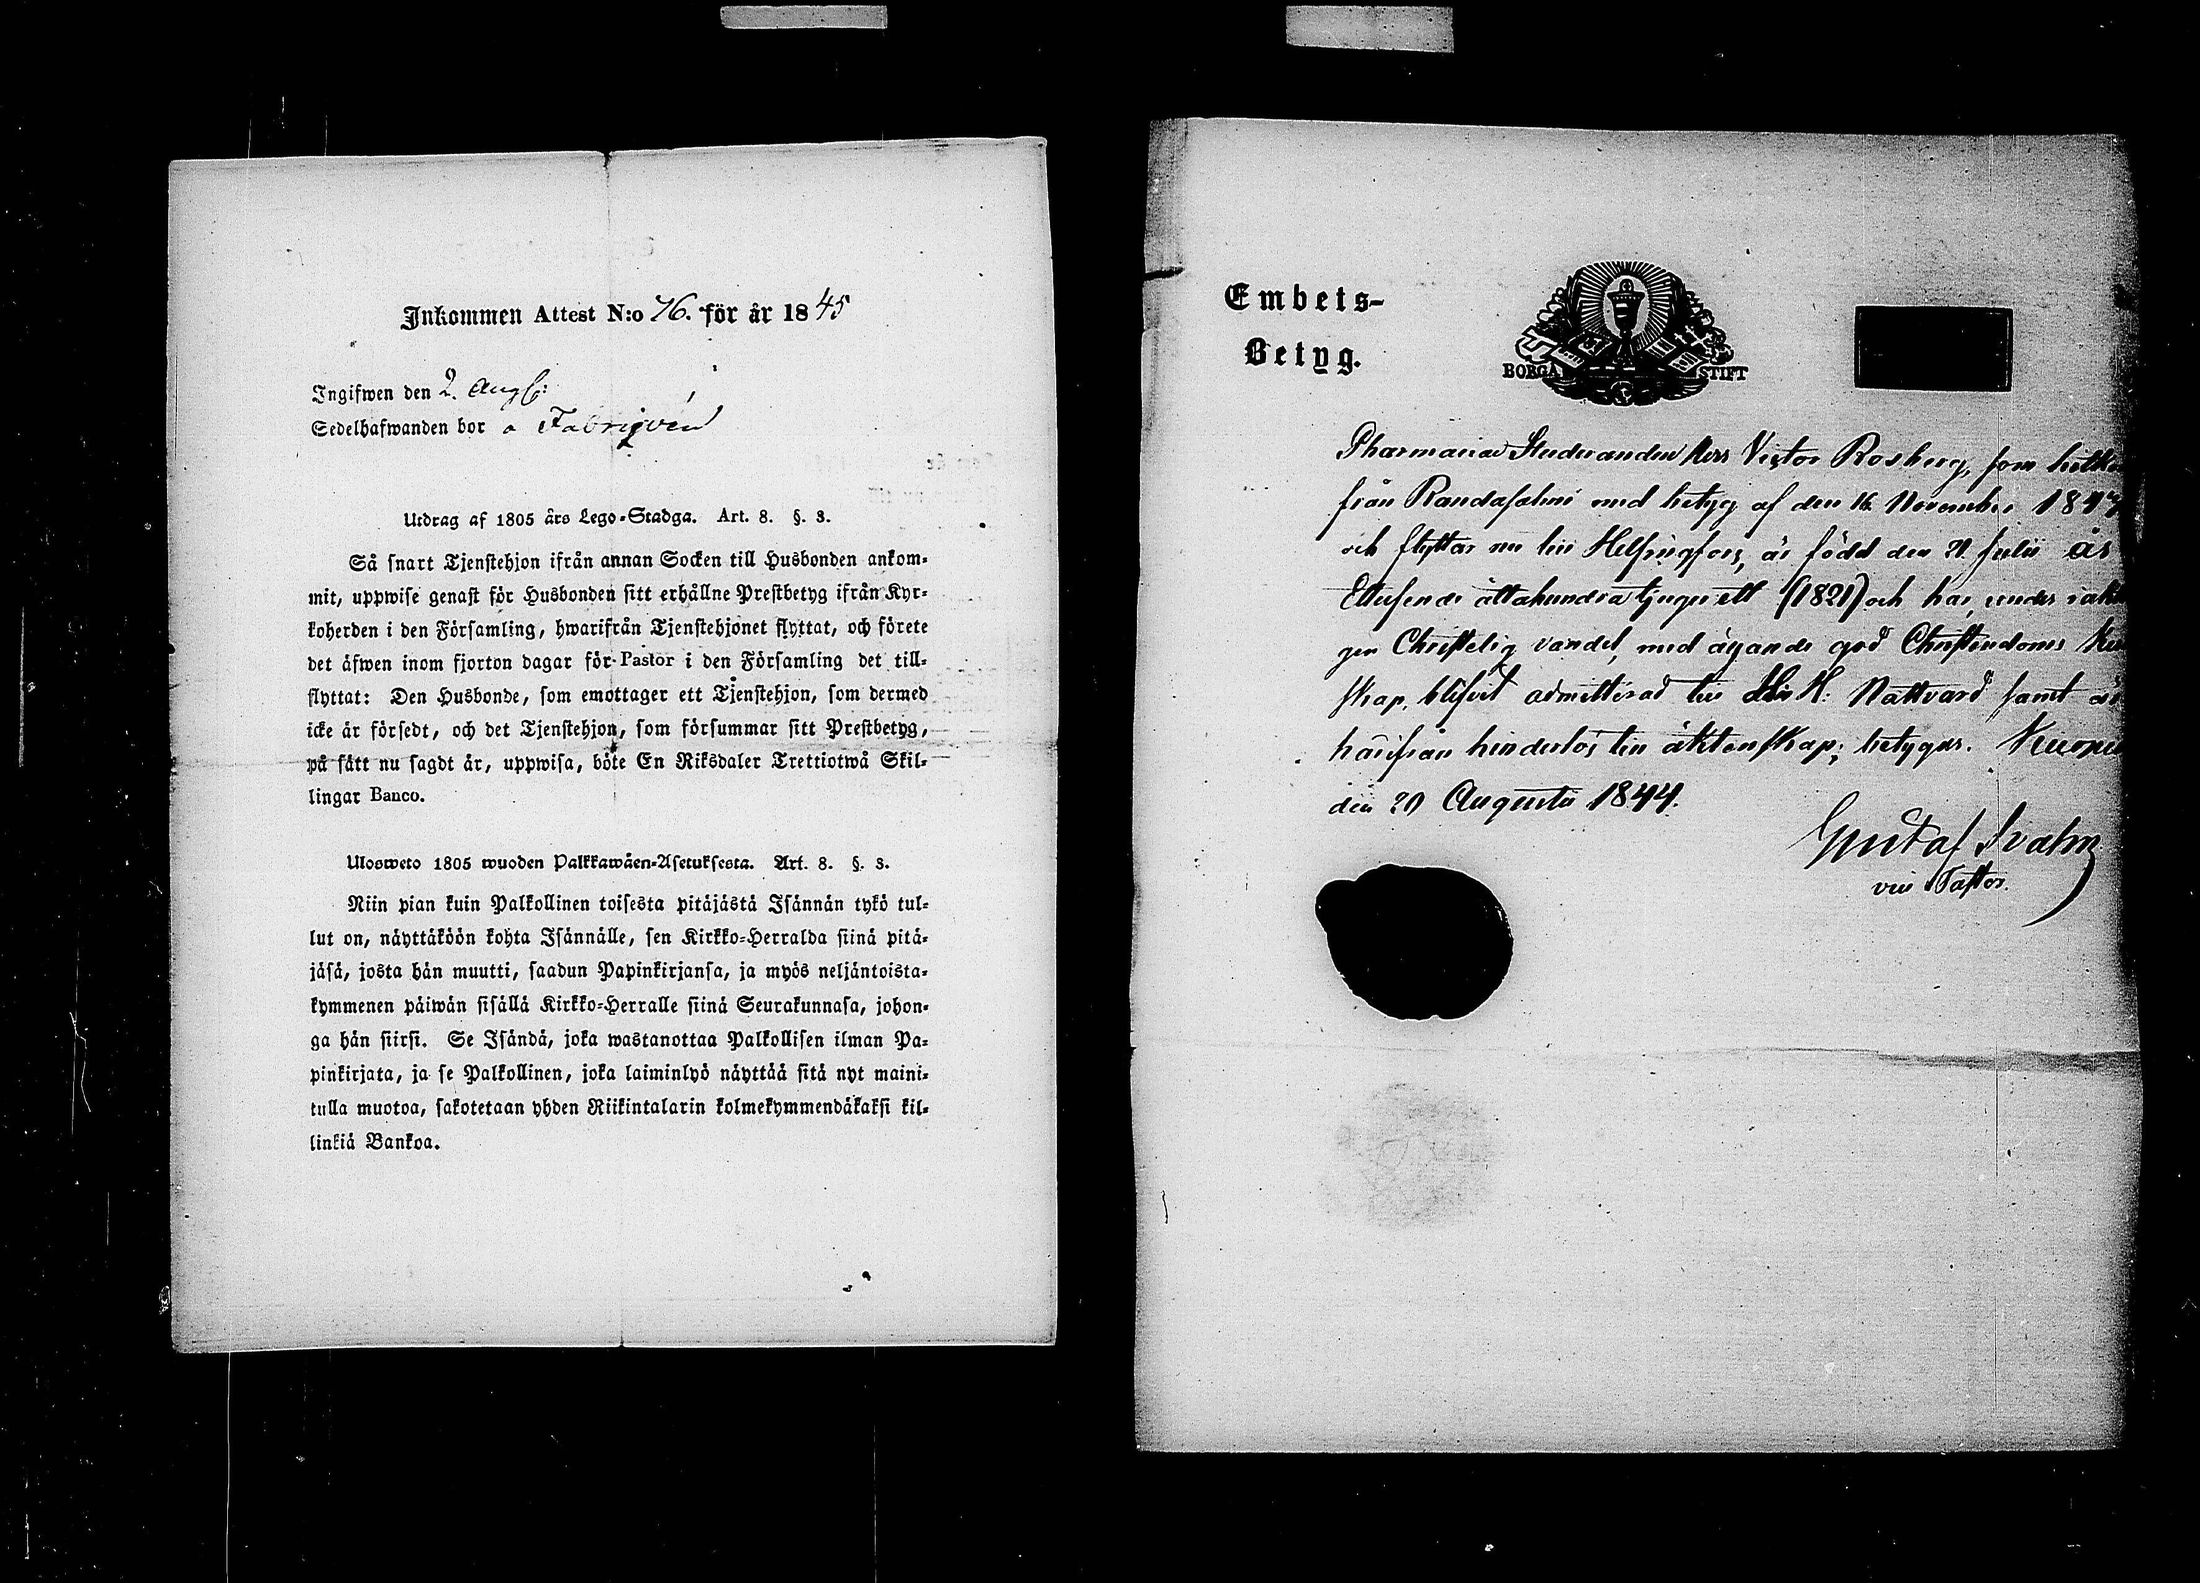 Inkommen Attest N:o 76. för år 1845
Ingifwen den 2. Aug
Sedelhafwanden bor a Fabriqven
Utdrag af 1805 års Lego-Stadga. Art. 8. §. 3.
Så snart Tjenstehjon ifrån annan Socken till Husbonden ankom-
mit, uppwise genast för Husbonden sitt erhållne Prestbetyg ifrån Kyr-
koherden i den Församling, hwarifrån Tjenstehjonet flyttat, och förete
det äfwen inom fjorton dagar för Pastor i den Församling det till-
flyttat: Den Husbonde, som emottager ett Tjenstehjon, som dermed
icke är försedt, och det Tjenstehjon, som försummar sitt Prestbetyg,
på sätt nu sagdt är, uppwisa, böte En Riksdaler Trettiotwå Skil-
lingar Banco.
Ulosweto 1805 wuoden Palkkawäen-Asetuksesta. Art. 8. §. 3.
Niin pian kuin Palkollinen toisesta pitäjästä Isännän tykö tul-
lut on, näyttäköön kohta Isännälle, sen Kirkko-Herralda siinä pitä-
jäsä, josta hän muutti, saadun Papinkirjansa, ja myös neljäntoista-
kymmenen päiwän sisällä Kirkko-Herralle siinä Seurakunnasa, johon-
ga hän siirsi. Se Isändä, joka wastanottaa Palkollisen ilman Pa-
pinkirjata, ja se Palkollinen, joka laiminlyö näyttää sitä nyt maini-
tulla muotoa, sakotetaan yhden Riikintalarin kolmekymmendäkaksi kil-
linkiä Bankoa.
Embets-
Betyg.
BORGÅ STIFT
Pharmaciae Studeranden Herr Victor Rosberg, som hitkom
från Randasalmi med betyg af den 16 November 184
och flyttar nu till Helsingfors, är född den 21 Julii år
Ettusende åttahundra tjuguett (1821) och har, under
gen Christelig vandel, med ägande god Christendoms
skap, blifvit admitterad till H. Nattvard samt är
härifrån hinderlös till äktenskap; betygar. Kuopio
den 20 Augusti 1844.
Gustaf Svahn
vice Pastor.